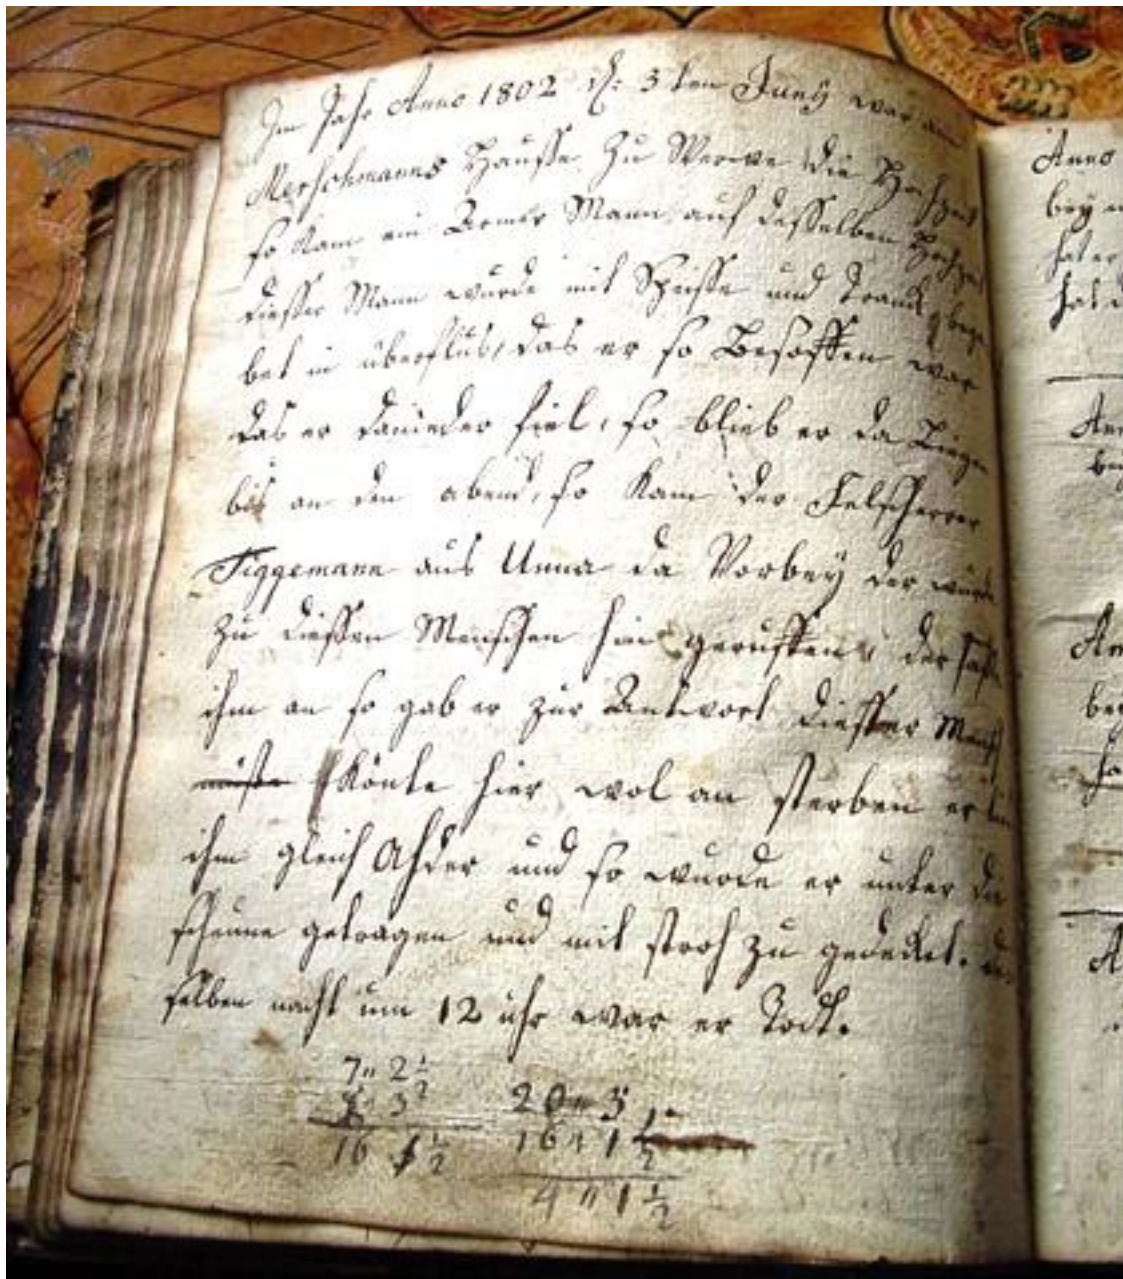 Im Jahr Anno 1802 d: 3ten Juny war an
Merschmanns Hausse Zu Werve die Hochzeit
so Kam ein Armer Mann auf desselben Hochzeit
diesser Mann wurde mit Speisse und Tranck
bet in überflus, das er so Besoffen war
das er danieder fiel, so blieb er da Liegen
bis an den abend, so Kam der Felscherrer
Tiggemann aus Unna da Vorbey der wurde
zu diessen Menschen hin geruffen, der sahe
ihm an so gab er zur Antwort diesser Mensch
müste Könte hier wol an sterben er
ihm gleich Ahder und so wurde er unter die
scheune getragen und mit stroh zu gedecket.
selben nacht um 12 uhr war er Todt.
7" 2 1/2
3
20 " 3
16 1 1/2
16 " 1 1/2
4 " 1 1/2
Anno
bey
hat er
hat
An
bey